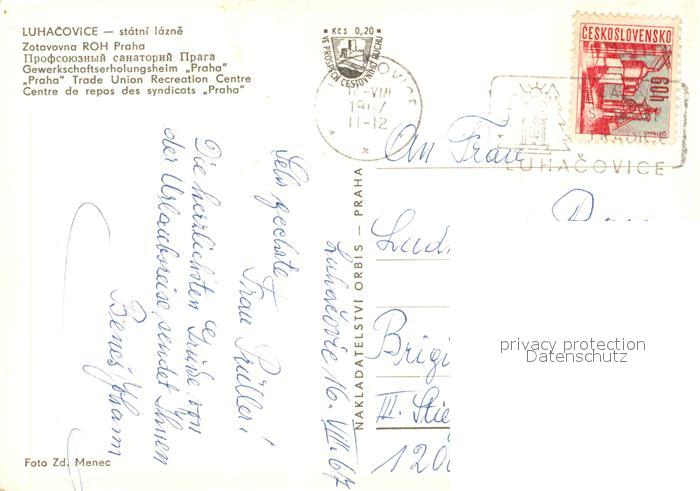 LUHAČOVICE — státní lázně
Zotavovna ROH Praha
Профсоюзный санаторий Прага
Gewerkschaftserholungsheim „Praha"
„Praha" Trade Union Recreation Centre
Centre de repos des syndicats „Praha"
Kčs 0,20
VE PROSPĚCH CESTOVNÍHO RUCHU
11-12
ČESKOSLOVENSKO
60h
LUHAČOVICE
Luhačovice 16. VIII. 67
Sehr geehrte
Frau Müller!
Die herrlichsten Grüße von
der Urlaubsreise sendet Ihnen
Beneš Johann
NAKLADATELSTVÍ ORBIS — PRAHA
An Frau
Ludi
Brigi
III. Stie
120
privacy protection
Datenschutz
Foto Zd. Menec